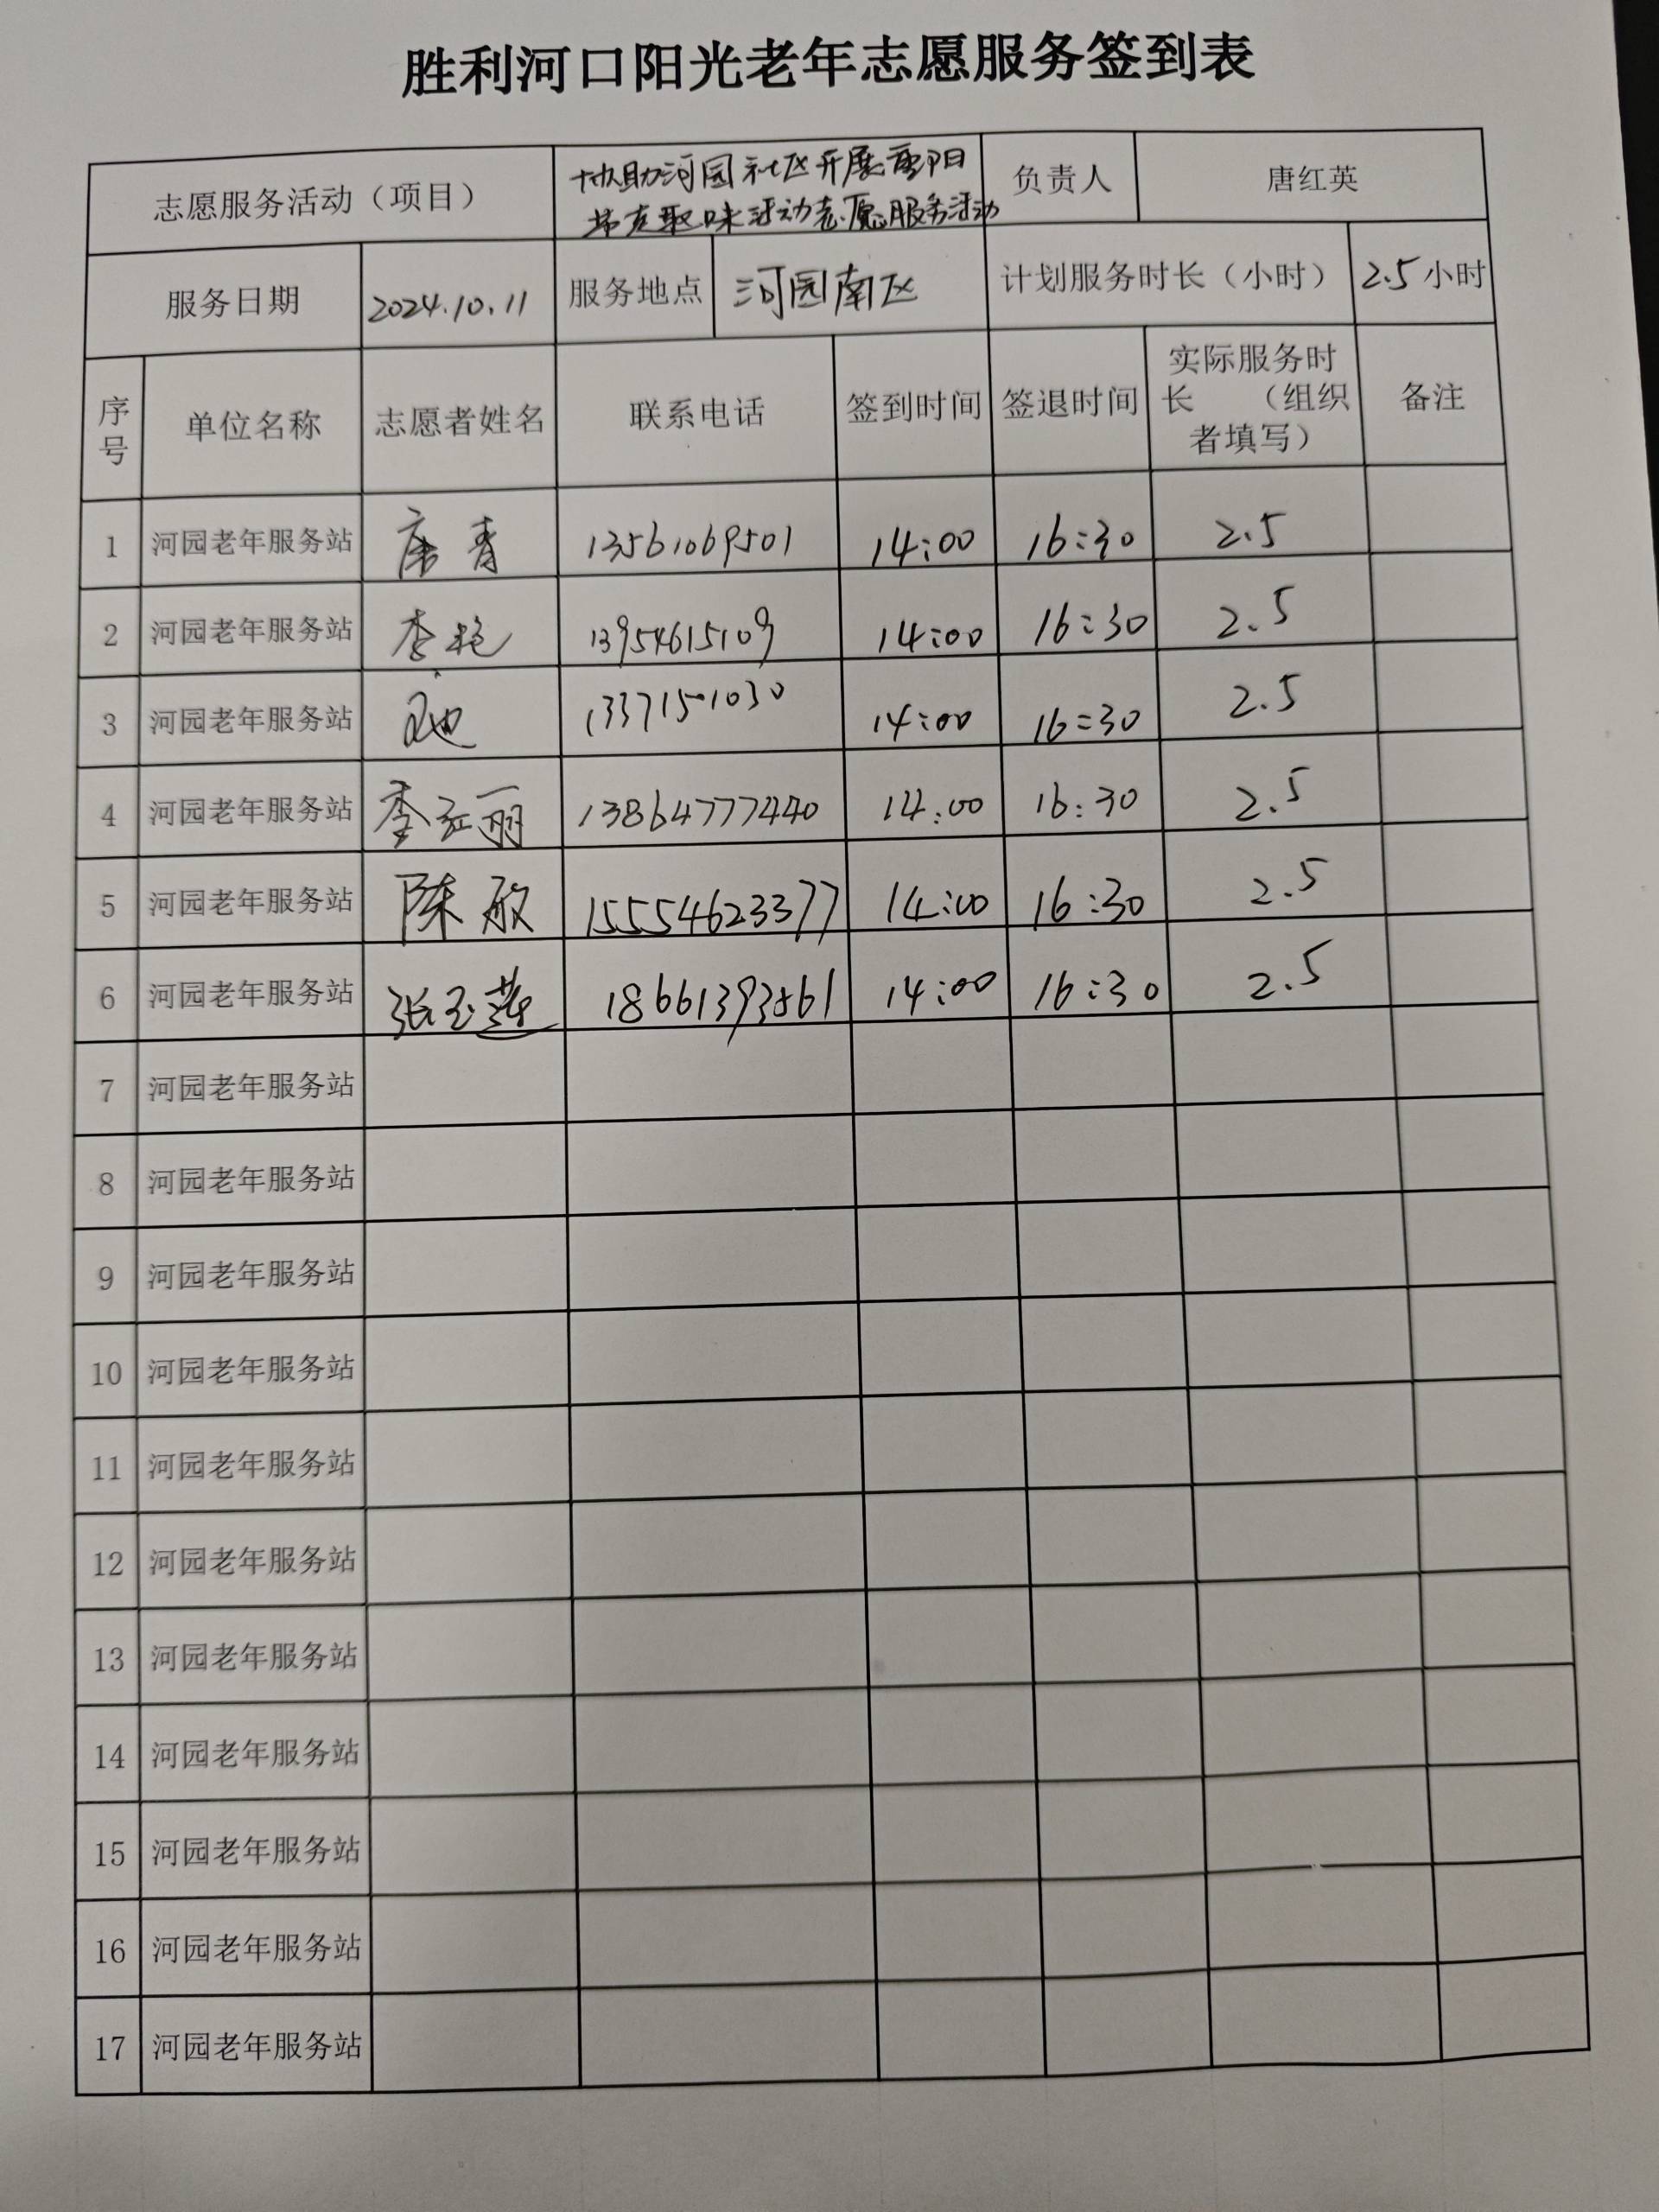 胜利河口阳光老年志愿服务签到表
志愿服务活动（项目） 协助河园社区开展重阳 负责人 唐红英
趣味活动志愿服务活动
服务日期 2024.10.11 服务地点 河园南区 计划服务时长（小时） 2.5小时
序号 单位名称 志愿者姓名 联系电话 签到时间 签退时间 实际服务时长 （组织者填写） 备注
1 河园老年服务站 唐青 13561069501 14:00 16:30 2.5
2 河园老年服务站 李艳 13954615109 14:00 16:30 2.5
3 河园老年服务站 13371501030 14:00 16:30 2.5
4 河园老年服务站 李红丽 13864777440 14:00 16:30 2.5
5 河园老年服务站 陈敏 15554623377 14:00 16:30 2.5
6 河园老年服务站 张玉莲 18661393861 14:00 16:30 2.5
7 河园老年服务站
8 河园老年服务站
9 河园老年服务站
10 河园老年服务站
11 河园老年服务站
12 河园老年服务站
13 河园老年服务站
14 河园老年服务站
15 河园老年服务站
16 河园老年服务站
17 河园老年服务站